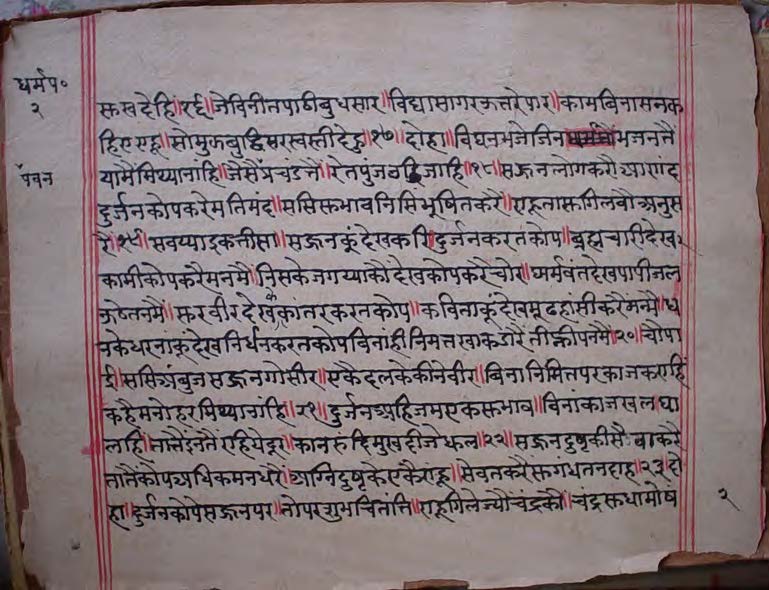 धर्मप०
२
रु सुष देहि॥१६॥ जे विनीत पाठी बुधसार॥ विद्यासागर ऊतरे पार॥ काम विना सनक
हिए एहू॥ सो मुक बुद्धि सरस्वती देहु॥१७॥ दोहा॥ विघन भजे जिन भजन तै
पवन
या मै मिथ्या नांहि॥ जैसै प्रचंड तै॥ रेत पुंज उडि जाहि॥१८॥ सज्जन लोग करौ
दुर्जन कोप करे मतिमंद॥ ससि सुभाव निसि भूषित करै॥ राहू तासु गिलवौ अनुस
रै॥१९॥ सवय्या इकतीसा॥ सज्जन कूं देख करि दुर्जन करत कोप॥ ब्रह्मचारी देख
कामी कोप करै मनमै॥ निसके जगय्या कौ देख कोप करै चोर॥ धर्मवंत देख पापी जल
तनमै॥ सूरवीर देखकैं कांतर करत कोप॥ कविता कूं देख मूढ हासी करै मनमै॥ ध
नके धरना कू देख निर्धन करत कोप विनांही निमत्त खाक डारै तीनपनमै॥२०॥ चोपा
ई॥ ससि अंबुज सज्जन गोसीर॥ एकै दलके कीने वीर॥ विना निमित पर काज कराहिं
कहै मनोहर मिथ्या नांहि॥२१॥ दुर्जन अहि जम एक सुभाव॥ विनां काज खल घा
लहि॥ तातै इनतै रहिये दूर॥ मुख दीजे धूल॥२२॥ सज्जन दुष्ट की सेवा करै
तातैं कोप अधिक मन धरै॥ अग्नि दुष्ट के एकै राहू॥ सेवत करै सुगंध तन दाह॥२३॥ दो
हा॥ दुर्जन कोपै सज्जन पर॥ तोपर शुभ चितंति॥ राहू गिले ज्यौं चंद्रकौ॥ चंद्र सुधा मोष
२